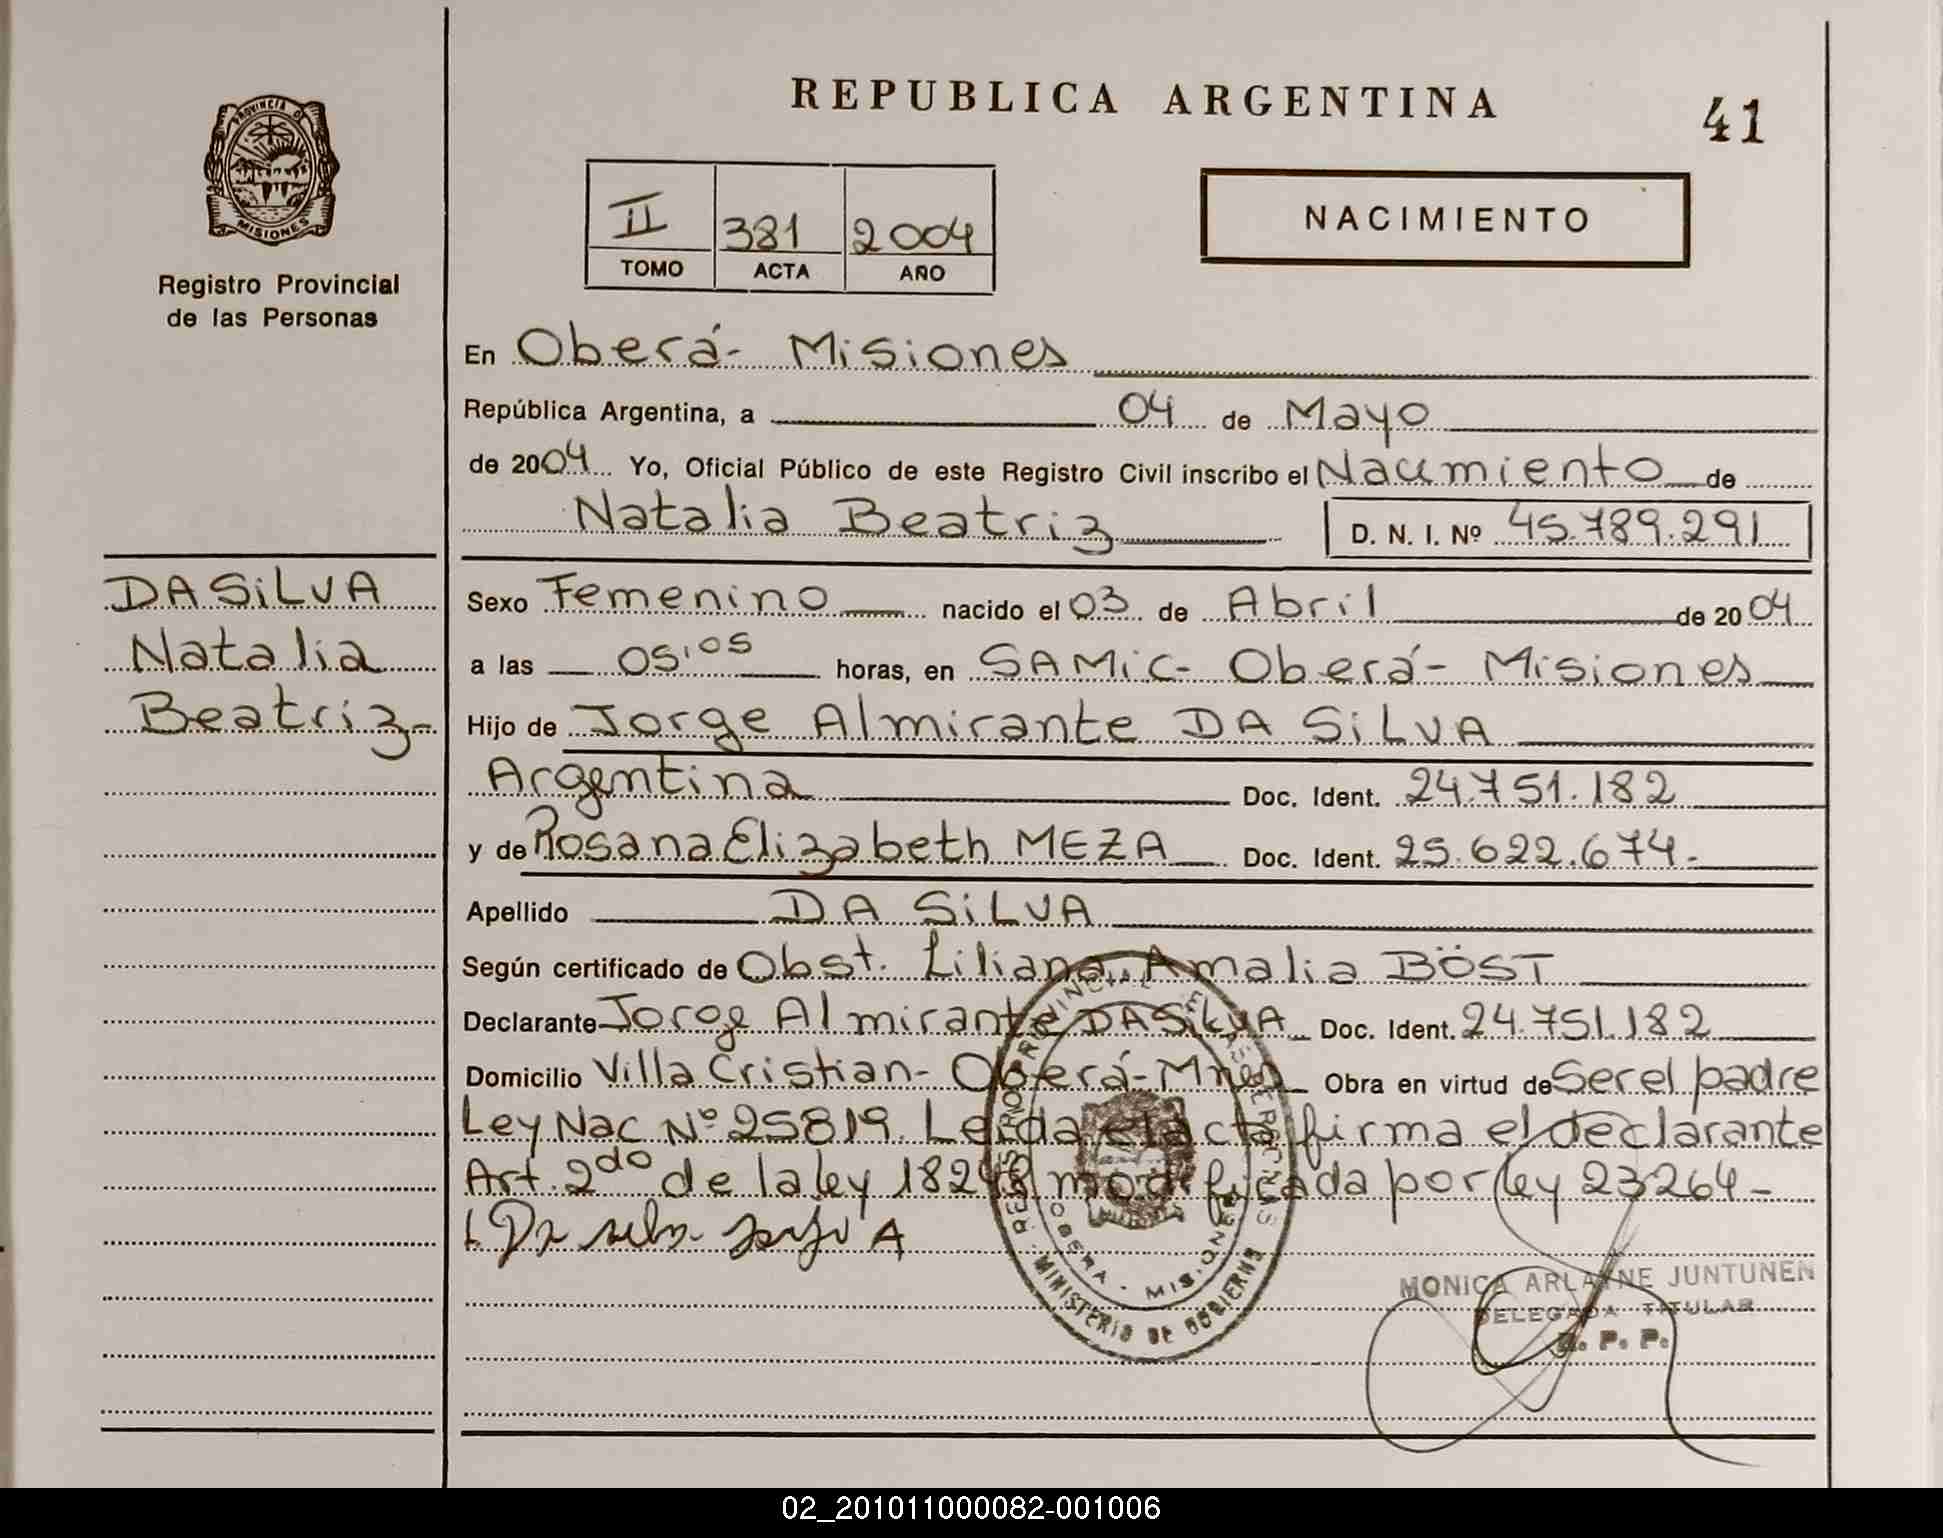 REPUBLICA ARGENTINA
41
PROVINCIA DE
MISIONES
Registro Provincial
de las Personas
II 381 2004
TOMO ACTA AÑO
NACIMIENTO
En Oberá- Misiones
República Argentina, a 04 de Mayo
de 2004 Yo, Oficial Público de este Registro Civil inscribo el Nacimiento de
Natalia Beatriz D. N. I. Nº 45.789.291
DA SiLVA
Natalia
Beatriz-
Sexo Femenino nacido el 03 de Abril de 2004
a las 05,05 horas, en SAMiC- Oberá- Misiones
Hijo de Jorge Almirante DA SiLVA
Argentina Doc. Ident. 24.751.182
y de Rosana Elizabeth MEZA Doc. Ident. 25.622.674-
Apellido DA SiLVA
Según certificado de Obst. Liliana Amalia BÖST
Declarante Jorge Almirante DA SiLVA Doc. Ident. 24.751.182
Domicilio Villa Cristian- Oberá- Mnes Obra en virtud de Ser el padre
Ley Nac Nº 25819. Leída el acta firma el declarante
Art. 2do de la ley 18248 modificada por ley 23264-
Da silva Jorge A
REGISTRO PROVINCIAL DE LAS PERSONAS
OBERA - MISIONES
MINISTERIO DE GOBIERNO
MONICA ARLAYNE JUNTUNEN
DELEGADA TITULAR
R. P. P.
02_201011000082-001006